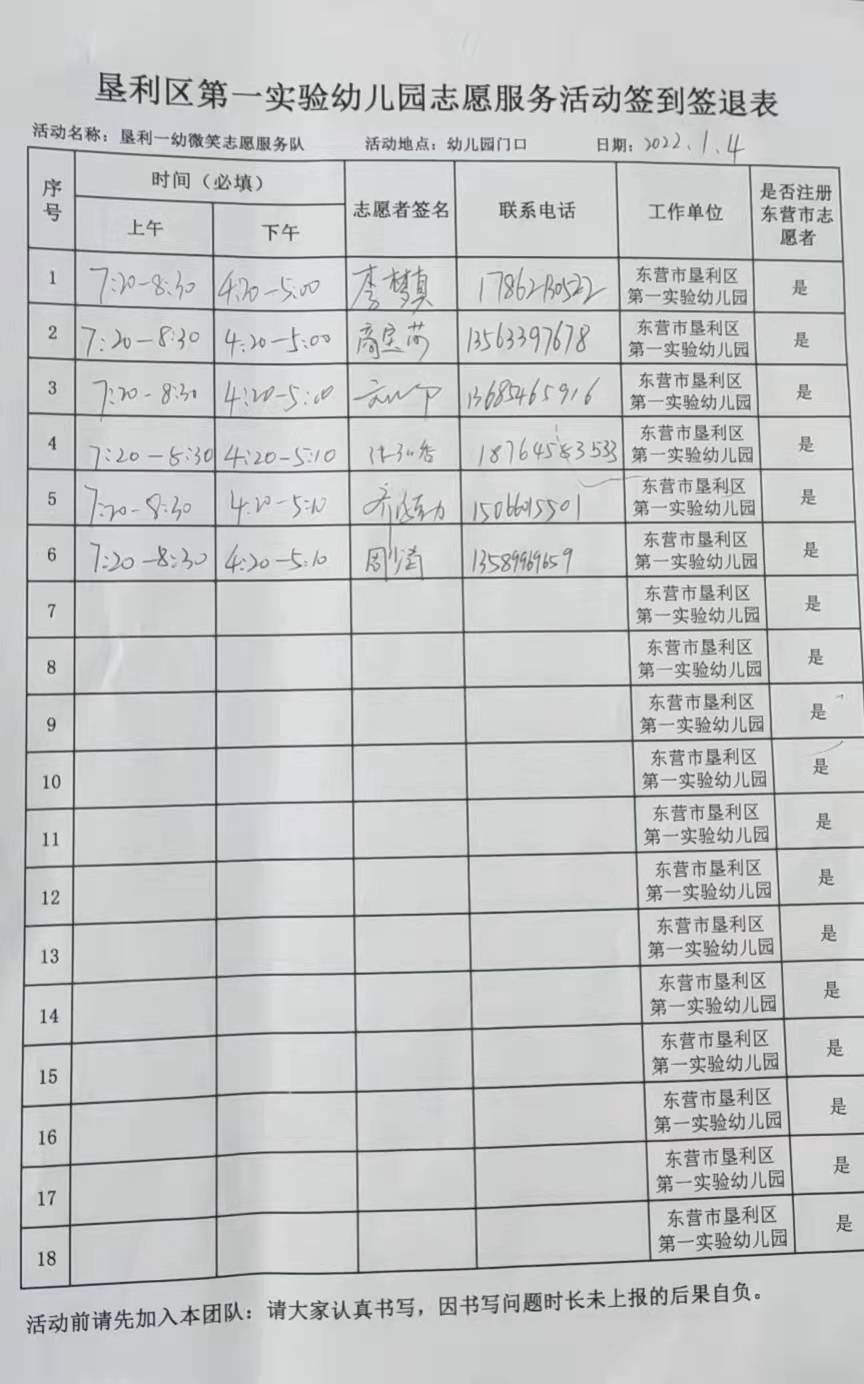 垦利区第一实验幼儿园志愿服务活动签到签退表
活动名称：垦利一幼微笑志愿服务队 活动地点：幼儿园门口 日期：2022.1.4
序号 时间（必填） 志愿者签名 联系电话 工作单位 是否注册东营市志愿者
上午 下午
1 7:20-8:30 4:20-5:00 李梦真 17862130522 东营市垦利区第一实验幼儿园 是
2 7:20-8:30 4:20-5:00 13563397678 东营市垦利区第一实验幼儿园 是
3 7:20-8:30 4:20-5:00 13685465916 东营市垦利区第一实验幼儿园 是
4 7:20-8:30 4:20-5:10 东营市垦利区第一实验幼儿园 是
5 7:20-8:30 4:20-5:10 15066015501 东营市垦利区第一实验幼儿园 是
6 7:20-8:30 4:20-5:10 13589969659 东营市垦利区第一实验幼儿园 是
7 东营市垦利区第一实验幼儿园 是
8 东营市垦利区第一实验幼儿园 是
9 东营市垦利区第一实验幼儿园 是
10 东营市垦利区第一实验幼儿园 是
11 东营市垦利区第一实验幼儿园 是
12 东营市垦利区第一实验幼儿园 是
13 东营市垦利区第一实验幼儿园 是
14 东营市垦利区第一实验幼儿园 是
15 东营市垦利区第一实验幼儿园 是
16 东营市垦利区第一实验幼儿园 是
17 东营市垦利区第一实验幼儿园 是
18 东营市垦利区第一实验幼儿园 是
活动前请先加入本团队：请大家认真书写，因书写问题时长未上报的后果自负。